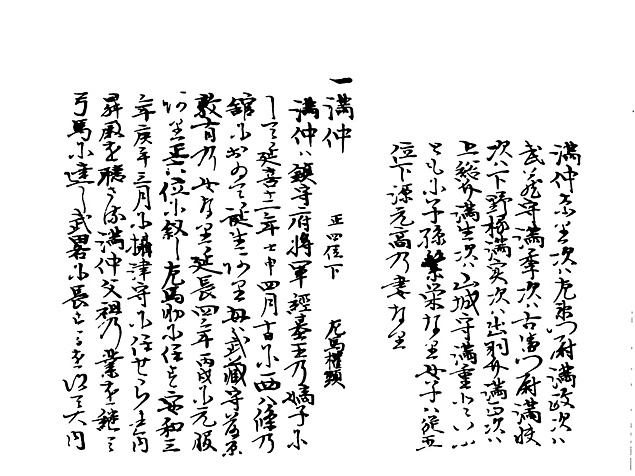 満仲あり次ハ左衛門尉満政次ハ
武蔵守満季次ハ右衛門尉満快
次ハ下野権満実次ハ出羽介満正次ハ
上総介満生次ハ山城守満重といふ
ともに子孫繁栄なり女子ハ従五
位下源元高乃妻なり
一満仲 正四位下 左馬権頭
満仲ハ鎮守府将軍経基王乃嫡子に
して延喜十二年壬申四月十日に西八條乃
館におゐて誕生あり母ハ武蔵守
敏有乃女なり延長四年丙戌に元服
あり正六位に叙し左馬助に任す安和三
年庚午三月に摂津守に任せられ内
昇殿を聴さる満仲父祖乃業を継て
弓馬に達し武畧に長す 大内